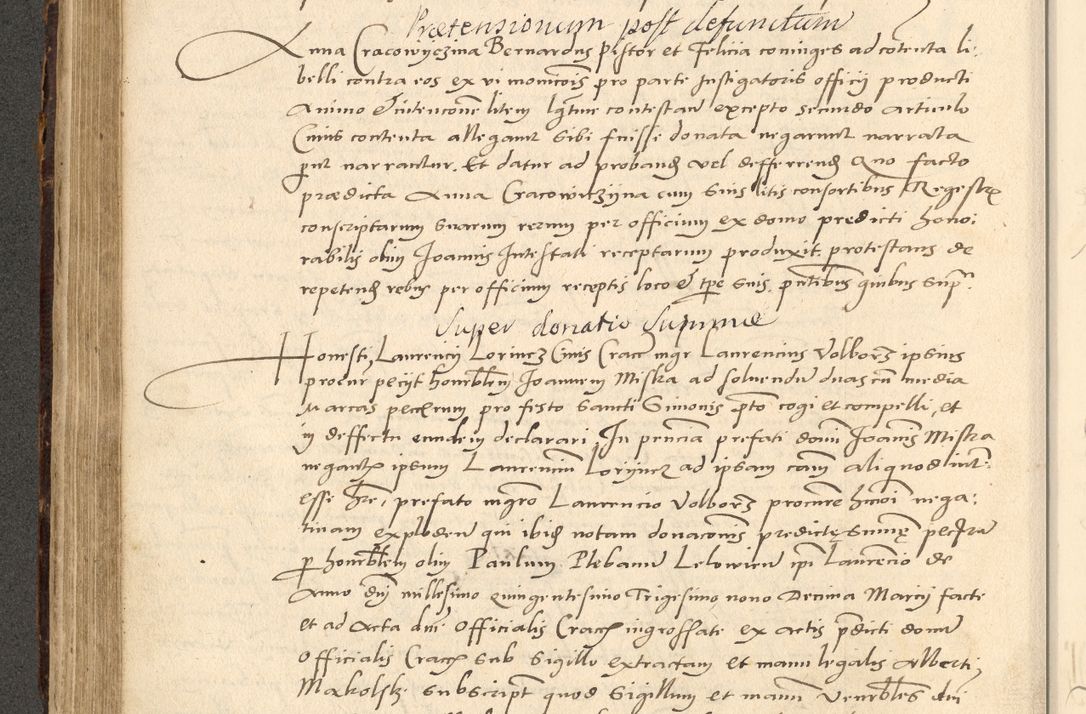 Prætensionum post defunctum
Anna Cracowyczina Bernardus Pistor et Felicia coniuges ad cōtenta li-
belli contra eos ex vi monicōis pro parte Instigatoris officii producti
Animo et intencione litem contestan excepto secundo articulo
Cuius contenta allegant sibi fuisse donata negarunt narrata
put narrantur. Et datur ad proband vel defferrend Quo facto
prædicta Anna Cracowiczyna cum suis litis consortibus Regestrū
conscriptarum suarum rerum per officium ex domo predicti hono-
rabilis olim Joannis Intestati receptarum produxit. protestans de
repetend rebus per officium receptis loco et tpe suis. pntibus quibus supra.
Super donatio Summæ
Honesti Laurencij Lorincz Civis Crac mgr Laurencius Volborz ipsius
procur petijt honorblem Joannem Miska ad solvendū duas cū media
Marcas peccrum pro festo Sancti Simonis cogi et compelli, et
in deffectu eundem declarari. In pencia prefati domi Joannis Miska
negantis ipsum Laurencium Lorijncz ad ipsam cām aliquod
esse pre, prefato mgro Laurencio Volborz procure nega-
tivam explodem qui ibidē notam donacionis predicte summe
p honorblem olim Paulum Plebanum Lelowien ipsi Laurencio de
Anno dni millesimo quingentesimo Trigesimo nono Decima Marcij facte
et ad Acta dni Officialis Cracn ingrossate ex actis pdicti domi
Officialis Cracn sub sigillo extractam et manu legalis Alberti
Makolsk subscript quod Sigillum et manum venerbles dni